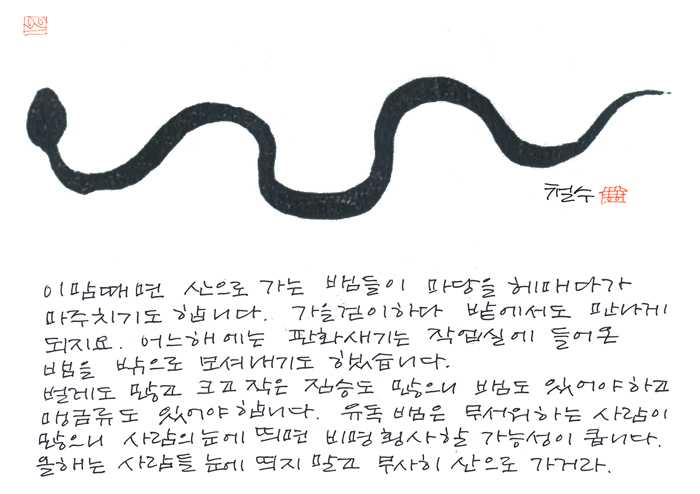 철수
이맘때면 산으로 가는 뱀들이 마당을 헤매다가
마주치기도 합니다. 가을걷이하다 밭에서도 만나게
되지요. 어느해에는 판화새기는 작업실에 들어온
뱀을 밖으로 모셔내기도 했습니다.
벌레도 많고 크고 작은 짐승도 많으니 뱀도 있어야 하고
맹금류도 있어야 합니다. 유독 뱀은 무서워하는 사람이
많으니 사람의 눈에 띄면 비명횡사할 가능성이 큽니다.
올해는 사람들 눈에 띄지 말고 무사히 산으로 가거라.